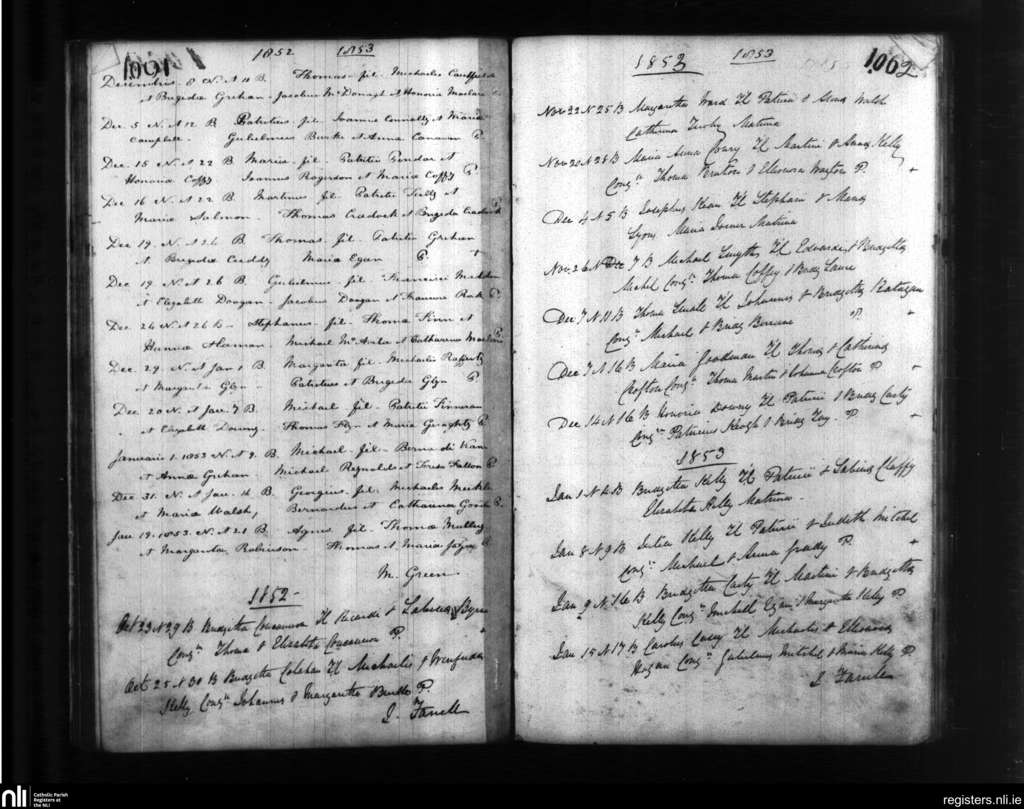 1061
1852 1853
Decembris 8 N. A 11 B. Thomas fil. Michaelis Caulfield
et Brigida Grehan. Jacobus McDonagh et Honoria
Dec. 5 N. A 12 B Patritius fil. Joannis Connelly et Maria
Gulielmus Burke et Anna Canavan P.
Dec. 15 N. A 22 B. Maria fil. Patritii Pindar et
Honoria Coffy Joannes Rogerson et Maria Coffy P
Dec 16 N. A 22 B. Martinus fil. Patritii Kelly et
Maria Salmon. Thomas Cradock et Brigida Cradock
Dec 19. N. A 26 B. Thomas. fil. Patritii Grehan
et Brigida Cuddy Maria Egan P.
Dec 19. N. A 26 B. Gulielmus fil. Francisci Madden
et Elizabeth Doogan. Jacobus Doogan et P.
Dec 24 N. A 26 B. Stephanus. fil. Thoma Finn et
Hanna Hanan Michael et Catharina
Dec. 29. N. A Jan 1 B. Margarita fil. Michaelis Rafferty
et Margarita Glyn. Patritius et Brigida Glyn P
Dec 20 N. A Jan. 7 B. Michael fil. Patritii Finneran
et Elizabeth Downy. Thomas et Maria Geraghty P
Januarii 1. 1853 N. A 9. B. Michael. fil. Bernardi Kane
et Anna Grehan. Michael Reynolds et Teresa Fallon P
Dec 31. N. A Jan. 16 B. Georgius. fil. Michaelis
et Maria Walsh, Bernardus et Catharina P.
Jan 19. 1853. N. A 21 B. Agnes fil. Thoma Mullery
et Margarita Robinson. Thomas et Maria
M. Green.
1852
Oct 23 N 29 B Bridgetta Concannon Fil Ricardi &
Congn Thoma & Elizabetha Concannon P.
Oct 25 N 30 B Bridgetta Colohan Fil Michaelis & Winefrida
Kelly Congn Johannis & Margaretha P.
J. Farrell
1062
1852 1853
Nov 22 N 25 B Margaretha Ward Fil Patricii & Walsh
Catherina Matrina
Nov 20 N 28 B Maria Anna Fil Martini & Anna Kelly
Congn Thoma & Elleonora P.
Dec 4 N 5 B Josephus Kean Fil Stephani & Maria
Lyons Maria Matrina
Nov 26 N Dec 7 B Michael Smyth Fil Edwardi & Bridgetta
Congn Thoma Coffey & Bridg
Dec 7 N 11 B Thoma Fil Johannis & Bridgetta
Congn Michael & Bridg P.
Dec 9 N 16 B Maria Goodman Fil Thoma & Catherina
Crofton Congn Thoma Martin & Johanna Crofton P
Dec 14 N 16 B Honoria Downy Fil Patricii & Bridg Carty
Congn Patricius Keogh & Bridg P.
1853
Jan 1 N 4 B Bridgetta Kelly Fil Patricii & Sabina Claffy
Elizabetha Kelly Matrina.
Jan 8 N 9 B Kelly Fil Patricii & Judith Mitchel
Congn Michael & Anna Grady P.
Jan 9 N 16 B Bridgetta Carty Fil Martini & Bridgetta
Kelly Congn Michael Egan & Margaretha Kelly P
Jan 15 N 17 B Carolus Casey Fil Michaelis & Elleonora
Hogan Congn Gulielmus Mitchel & Maria Kelly P
J. Farrell
nli
Catholic Parish
Registers at
the NLI
registers.nli.ie